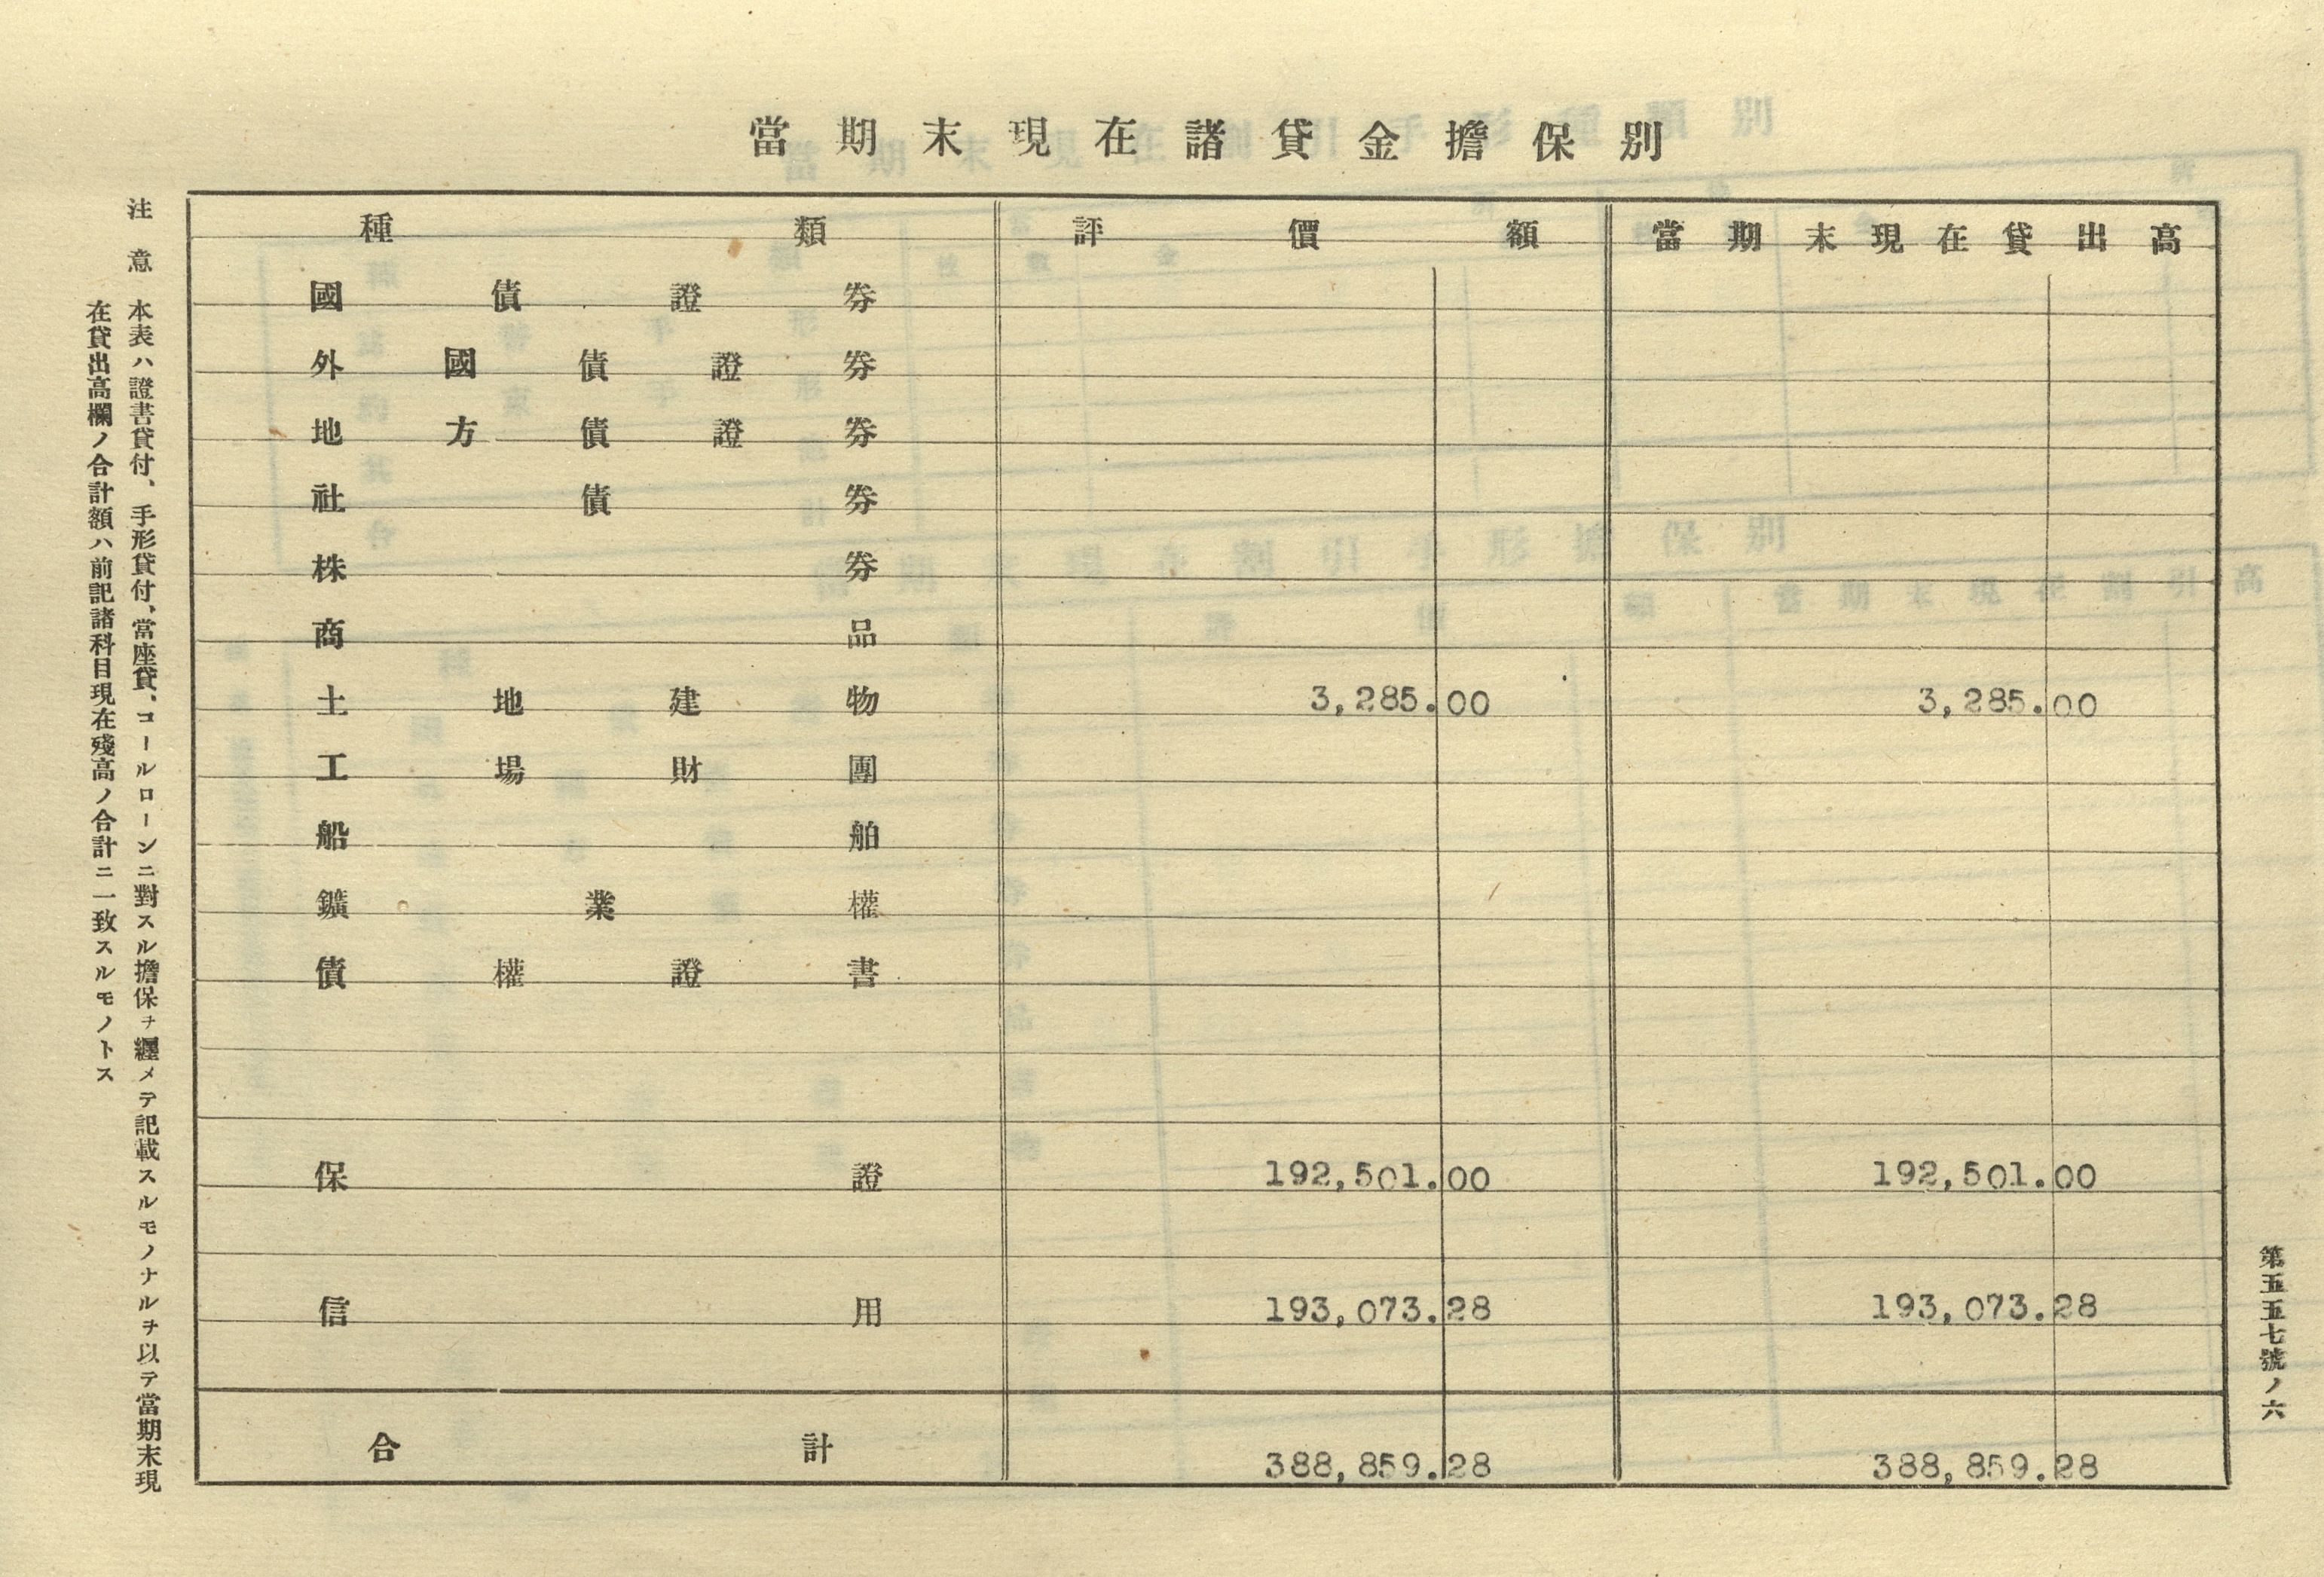 當期末現在諸貸金擔保別
種類 評價額 當期末現在貸出高
國債證券
外國債證券
地方債證券
社債券
株券
商品
土地建物 3,285.00 3,285.00
工場財團
船舶
鑛業權
債權證書
保證 192,501.00 192,501.00
信用 193,073.28 193,073.28
合計 388,859.28 388,859.28
注意 本表ハ證書貸付、手形貸付、當座貸、コールローンニ對スル擔保ヲ纒メテ記載スルモノナルヲ以テ當期末現
在貸出高欄ノ合計額ハ前記諸科目現在殘高ノ合計ニ一致スルモノトス
第五五七號ノ六